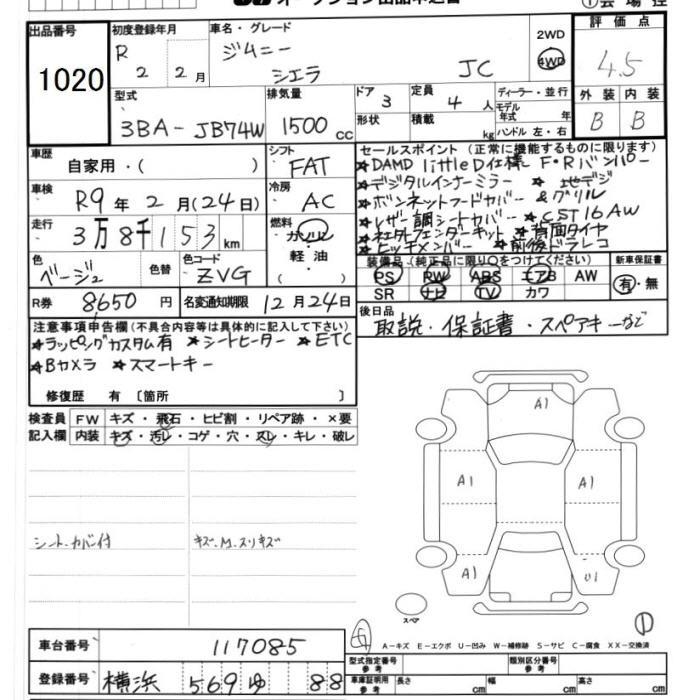 出品番号
1020
初度登録年月
R 2 2月
車名・グレード
ジムニー
シエラ JC
2WD
4WD
評価点
4.5
型式
3BA-JB74W
排気量
1500 cc
ドア 3
定員 4人
形状
積載 kg
ディーラー・並行
モデル年式 年
ハンドル 左・右
外装 内装
B B
車歴
自家用・( )
シフト
FAT
車検
R9年2月(24日)
冷房
AC
走行
3万8千153km
燃料
ガソリン
軽油
( )
色
ベージュ
色替
色コード
ZVG
R券 8,650円
名変通知期限 12月24日
セールスポイント (正常に機能するものに限ります)
★DAMD little D仕様 F・Rバンパー
★デジタルインナーミラー ★地デジ
★ボンネットフードカバー &グリル
★レザー調シートカバー ★CST16AW
フェンダーキット ★背面タイヤ
★ヒッチメンバー ★前後ドラレコ
装備品 (純正品に限り○をつけてください)
PS PW ABS エアB AW
SR ナビ TV カワ
新車保証書
有・無
後日品
取説・保証書・スペアキーなど
注意事項申告欄(不具合内容等は具体的に記入して下さい)
★ラッピングカスタム有 ★シートヒーター ★ETC
★Bカメラ ★スマートキー
修復歴 有 〔箇所 〕
検査員記入欄
FW キズ・飛石・ヒビ割・リペア跡・×要
内装 キズ・汚レ・コゲ・穴・スレ・キレ・破レ
シートカバー付
キズ・M・スリキズ
A1
A1
A1
A1
U1
スペア
1
A-キズ E-エクボ U-凹み W-補修跡 S-サビ C-腐食 XX-交換済
車台番号
117085
登録番号
横浜 569 ゆ 88
型式指定番号 参考
類別区分番号 参考
車庫証明用 参考
長さ cm
幅 cm
高さ cm